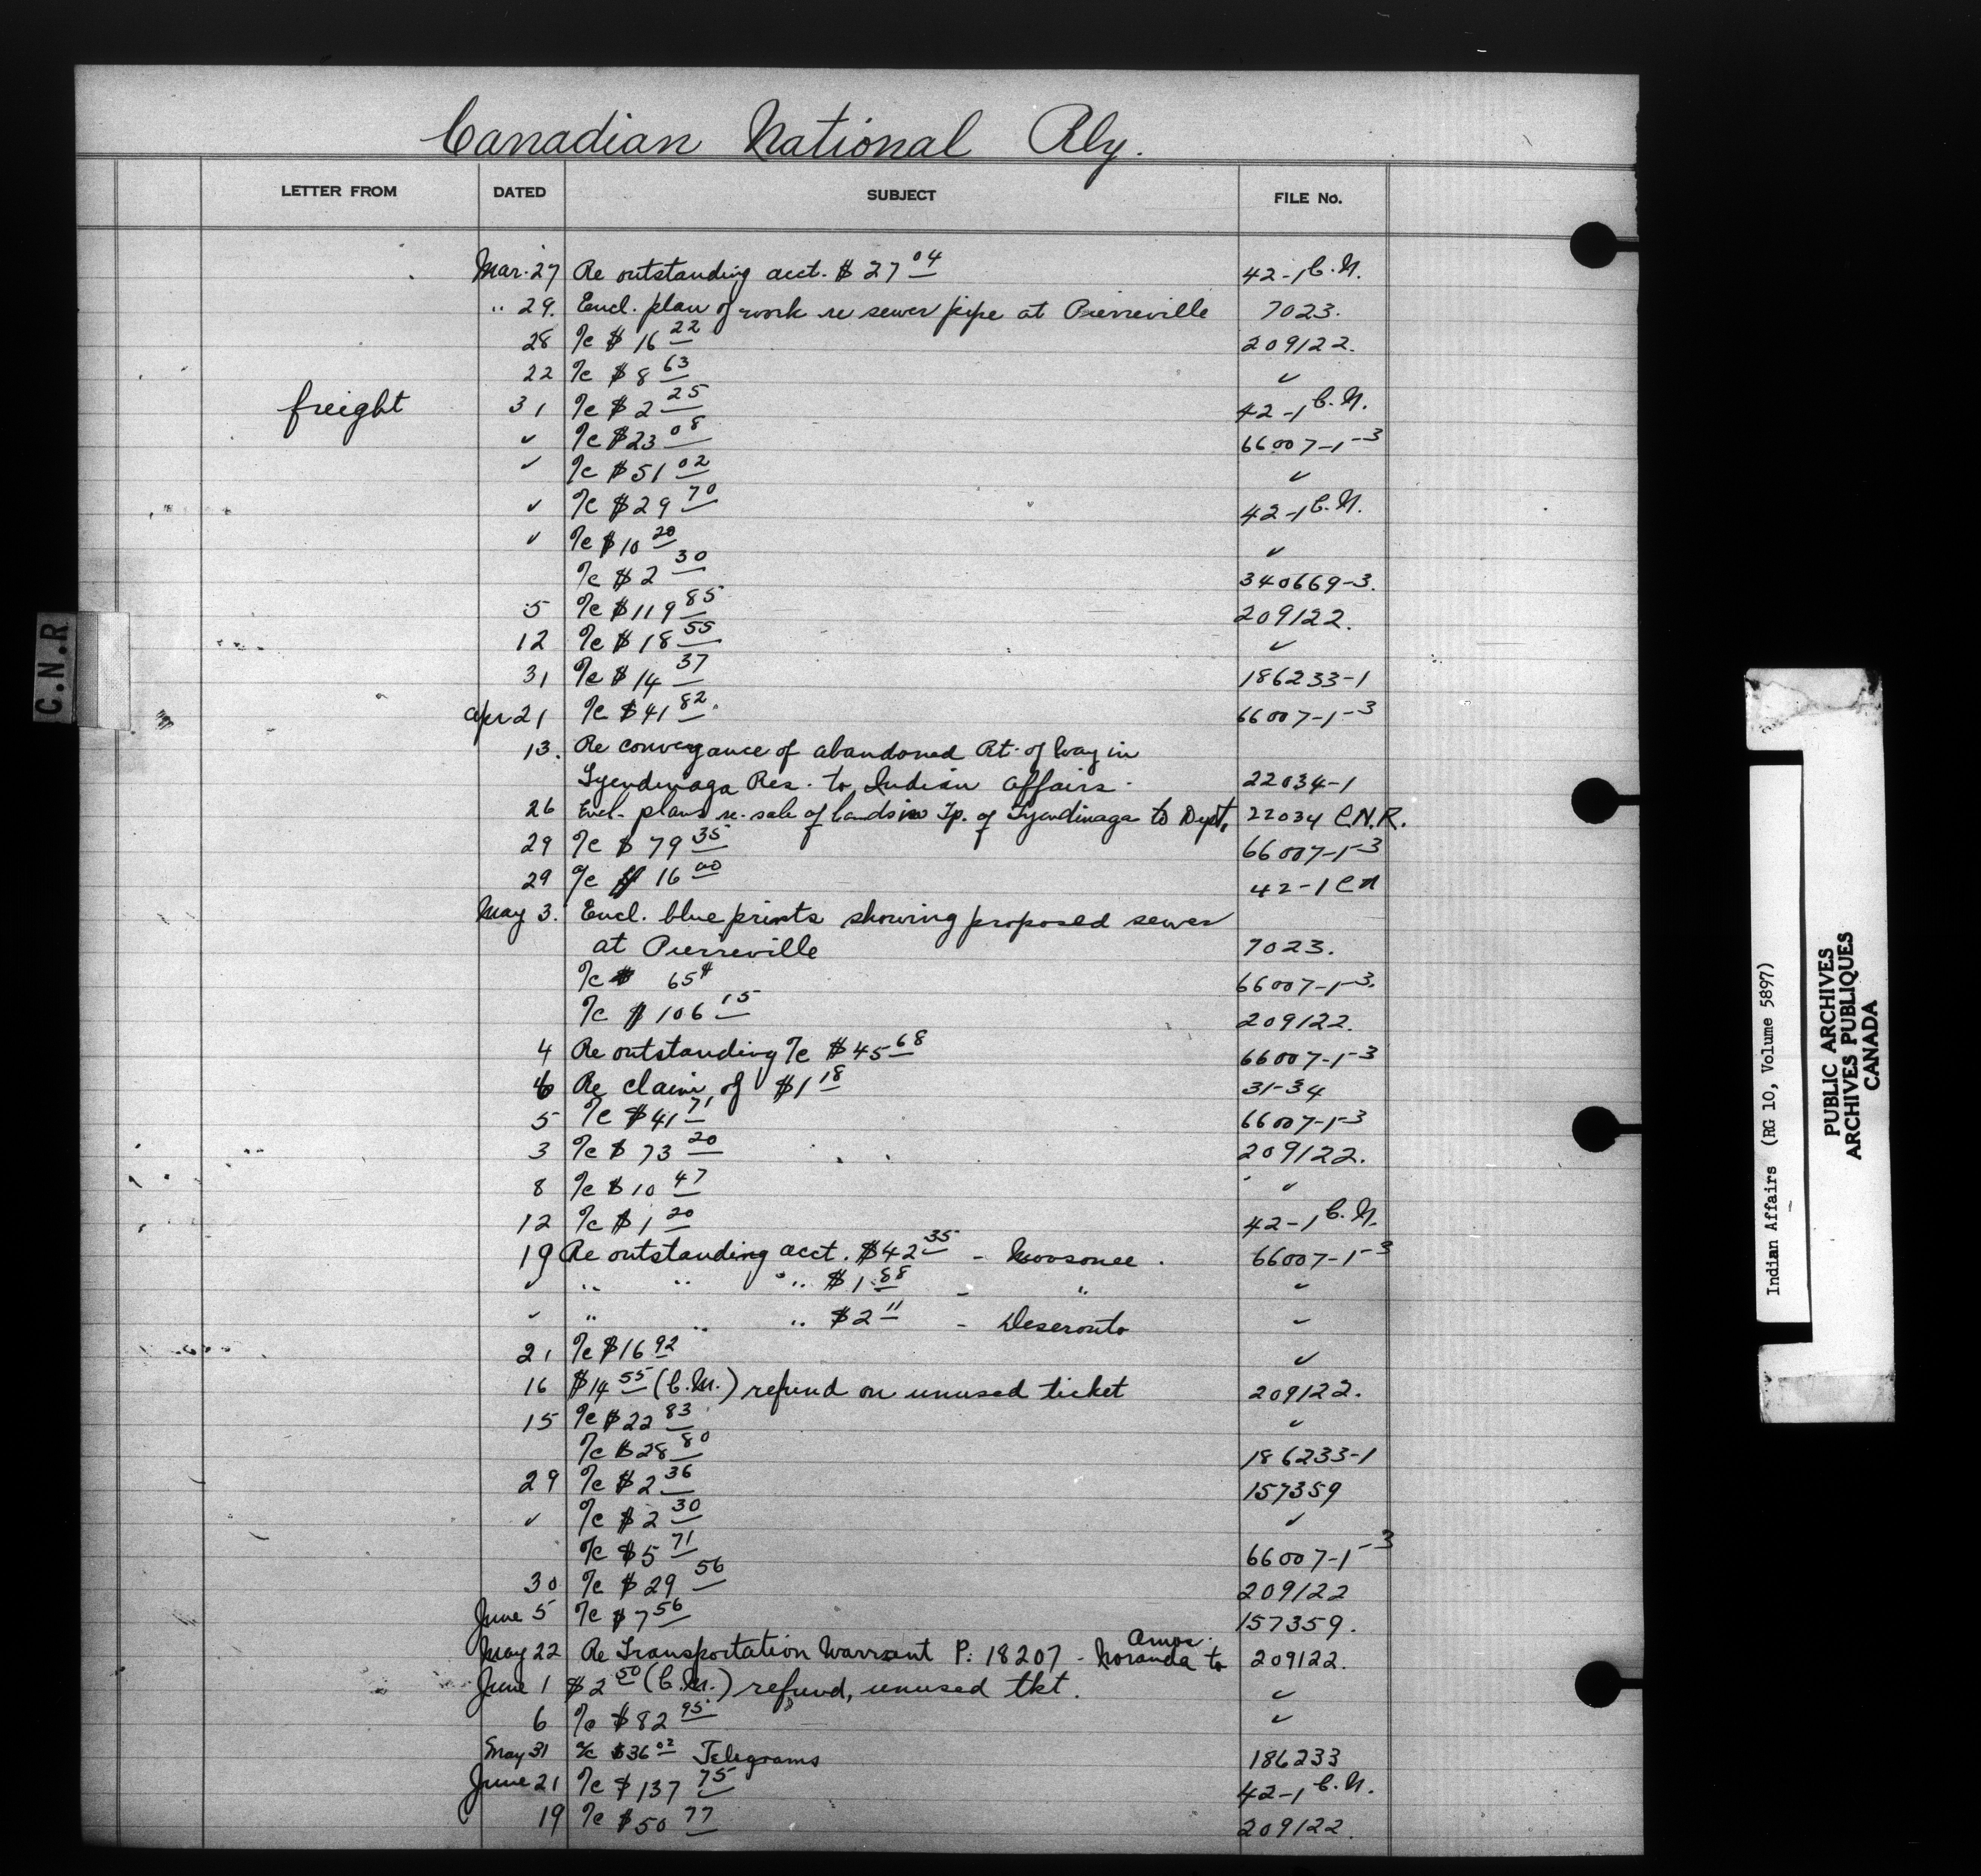 Canadian National Rly.
LETTER FROM DATED SUBJECT FILE No.
Mar. 27 Re outstanding acct. $27 04 42-1 C.N.
" 29. Encl. plan of work re sewer pipe at Pierreville 7023.
28 a/c $16 22 209122.
22 a/c $8 63 ✓
freight 31 a/c $2 25 42-1 C.N.
✓ a/c $23 08 66007-1-3
✓ a/c $51 02 ✓
✓ a/c $29 70 42-1 C.N.
✓ a/c $10 20 ✓
a/c $2 30 340669-3.
5 a/c $119 85 209122.
12 a/c $18 55 ✓
31 a/c $14 37 186233-1
Apr 21 a/c $41 82. 66007-1-3
13. Re conveyance of abandoned Rt. of Way in
Tyendinaga Res. to Indian Affairs. 22034-1
26 Encl. plans re. sale of lands in Tp. of Tyendinaga to Dept. 22034 C.N.R.
29 a/c $79 35 66007-1-3
29 a/c $16 00 42-1 CN
May 3. Encl. blue prints showing proposed sewer
at Pierreville 7023.
a/c 65¢ 66007-1-3.
a/c $106 15 209122.
4 Re outstanding a/c $45 68 66007-1-3
6 Re claim of $1 18 31-34
5 a/c $41 71 66007-1-3
3 a/c $73 20 209122.
8 a/c $10 47 ✓
12 a/c $1 20 42-1 C.N.
19 Re outstanding acct. $42 35 - Moosonee. 66007-1-3
✓ " " " $1.88 - " ✓
✓ " " " $2 11 - Deseronto ✓
21 a/c $16 92 ✓
16 $14 55 (C.M.) refund on unused ticket 209122.
15 a/c $22 83 ✓
a/c $28 80 186233-1
29 a/c $2 36 157359
✓ a/c $2 30 ✓
a/c $5 71 66007-1-3
30 a/c $29 56 209122
June 5 a/c $7 56 157359.
May 22 Re Transportation Warrant P. 18207 - Noranda to Amos. 209122.
June 1 $2 50 (C.M.) refund, unused tkt. ✓
6 a/c $82 95 ✓
May 31 a/c $36 02 Telegrams 186233
June 21 a/c $137 75 42-1 C.N.
19 a/c $50 77 209122.
C.N.R
Indian Affairs (RG 10, Volume 5897)
PUBLIC ARCHIVES
ARCHIVES PUBLIQUES
CANADA